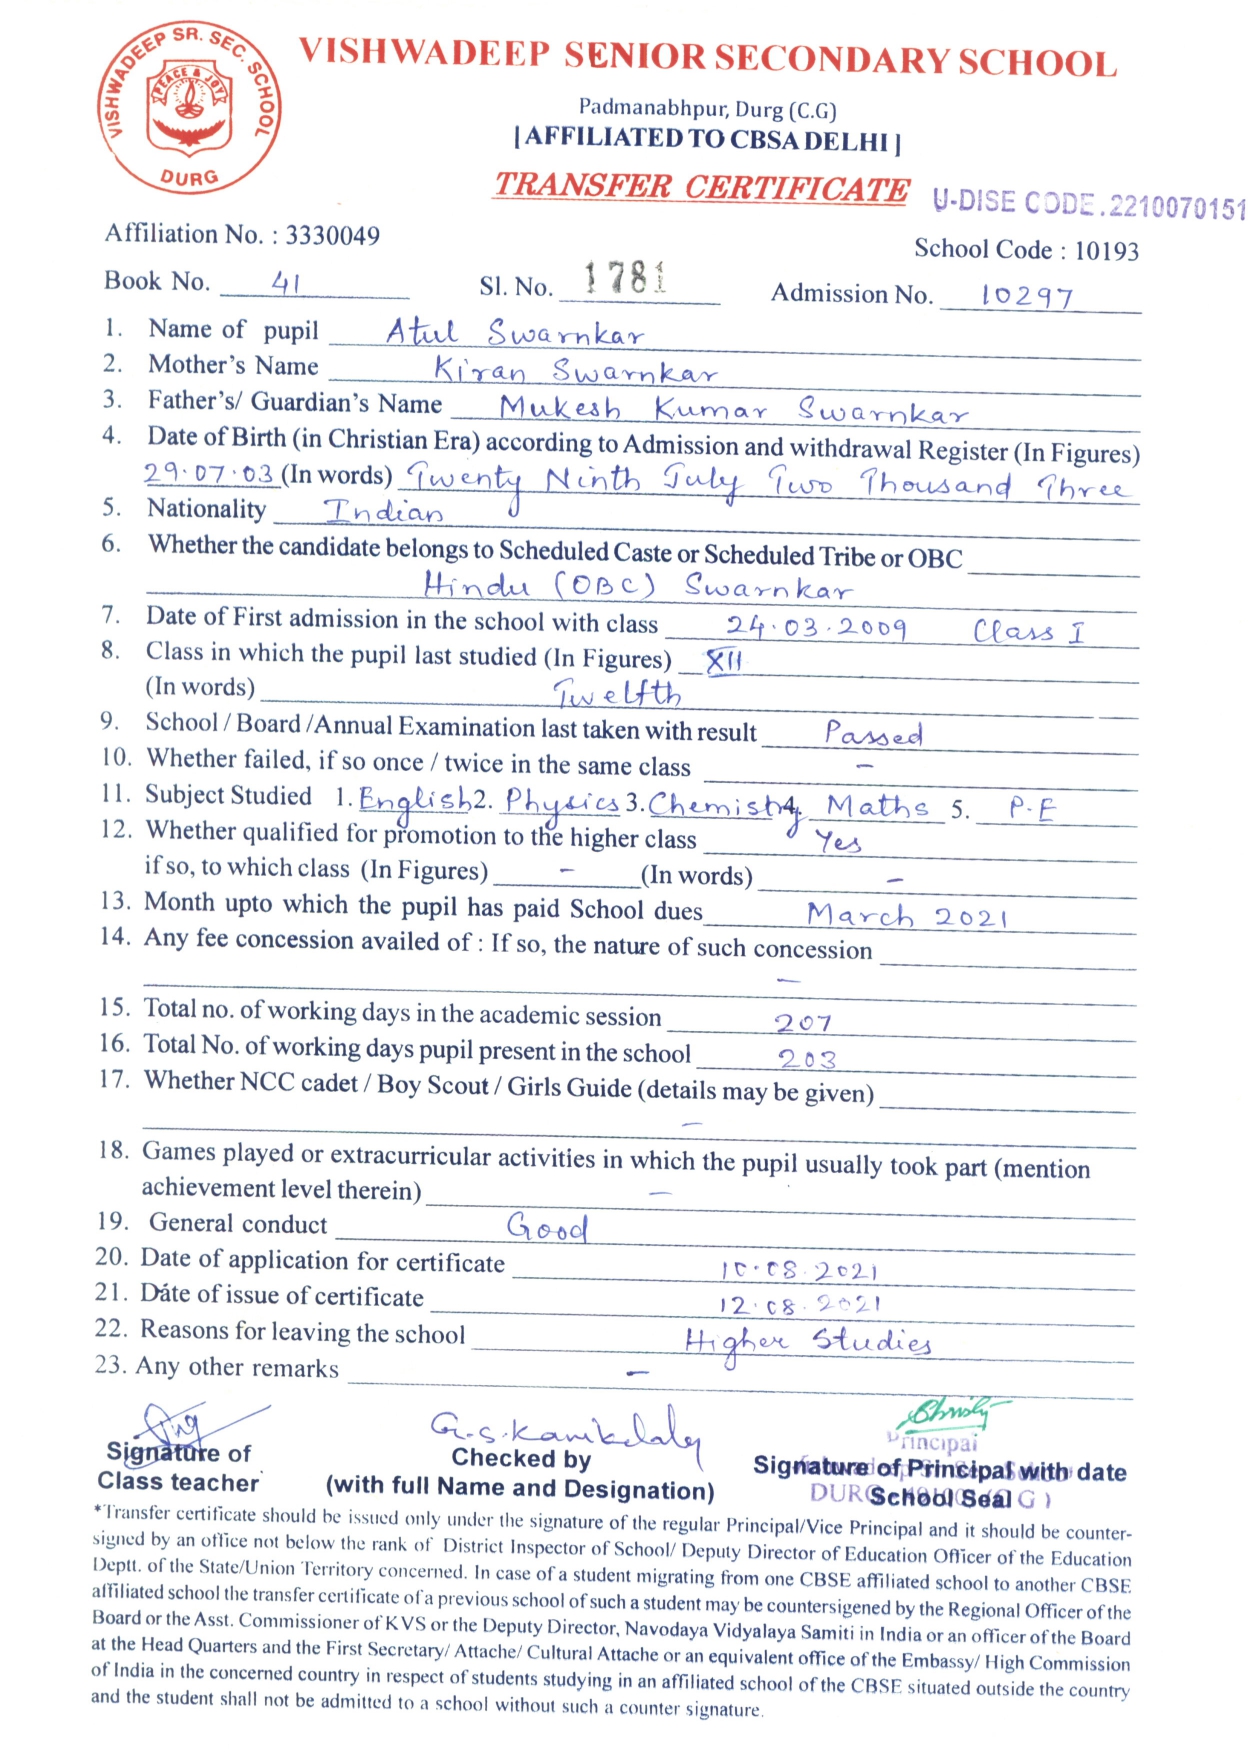 VISHWADEEP SR. SEC. SCHOOL
PEACE & JOY
DURG
VISHWADEEP SENIOR SECONDARY SCHOOL
Padmanabhpur, Durg (C.G)
[AFFILIATED TO CBSA DELHI]
TRANSFER CERTIFICATE U-DISE CODE.2210070151
Affiliation No. : 3330049 School Code : 10193
Book No. 41 Sl. No. 1781 Admission No. 10297
1. Name of pupil Atul Swarnkar
2. Mother's Name Kiran Swarnkar
3. Father's/ Guardian's Name Mukesh Kumar Swarnkar
4. Date of Birth (in Christian Era) according to Admission and withdrawal Register (In Figures)
29.07.03 (In words) Twenty Ninth July Two Thousand Three
5. Nationality Indian
6. Whether the candidate belongs to Scheduled Caste or Scheduled Tribe or OBC
Hindu (OBC) Swarnkar
7. Date of First admission in the school with class 24.03.2009 Class I
8. Class in which the pupil last studied (In Figures) XII
(In words) Twelfth
9. School / Board /Annual Examination last taken with result Passed
10. Whether failed, if so once / twice in the same class -
11. Subject Studied 1. English 2. Physics 3. Chemistry 4. Maths 5. P.E
12. Whether qualified for promotion to the higher class Yes
if so, to which class (In Figures) - (In words) -
13. Month upto which the pupil has paid School dues March 2021
14. Any fee concession availed of : If so, the nature of such concession
-
15. Total no. of working days in the academic session 207
16. Total No. of working days pupil present in the school 203
17. Whether NCC cadet / Boy Scout / Girls Guide (details may be given)
-
18. Games played or extracurricular activities in which the pupil usually took part (mention
achievement level therein) -
19. General conduct Good
20. Date of application for certificate 10.08.2021
21. Date of issue of certificate 12.08.2021
22. Reasons for leaving the school Higher Studies
23. Any other remarks -
Principal
Signature of Checked by Signature of Principal with date
Class teacher (with full Name and Designation) School Seal
DURG
*Transfer certificate should be issued only under the signature of the regular Principal/Vice Principal and it should be counter-
signed by an office not below the rank of District Inspector of School/ Deputy Director of Education Officer of the Education
Deptt. of the State/Union Territory concerned. In case of a student migrating from one CBSE affiliated school to another CBSE
affiliated school the transfer certificate of a previous school of such a student may be countersigened by the Regional Officer of the
Board or the Asst. Commissioner of KVS or the Deputy Director, Navodaya Vidyalaya Samiti in India or an officer of the Board
at the Head Quarters and the First Secretary/ Attache/ Cultural Attache or an equivalent office of the Embassy/ High Commission
of India in the concerned country in respect of students studying in an affiliated school of the CBSE situated outside the country
and the student shall not be admitted to a school without such a counter signature.